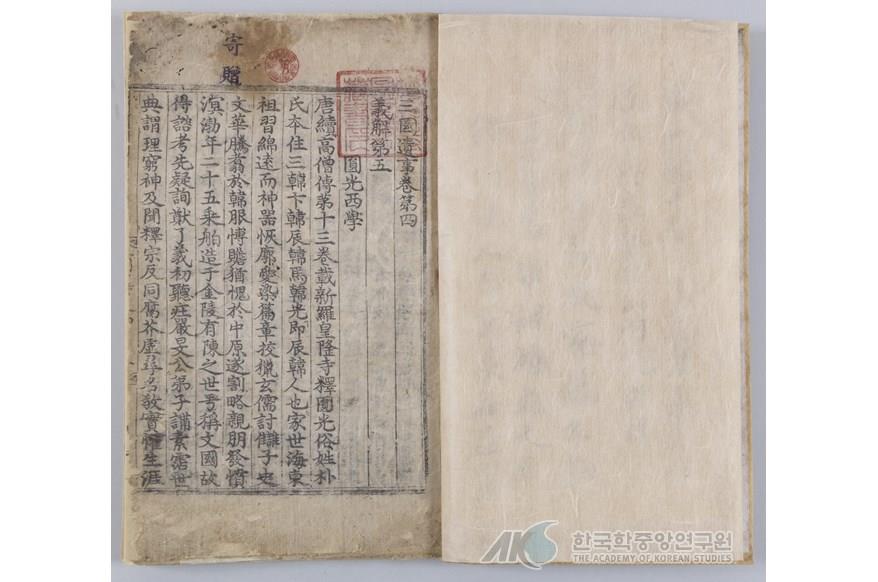 三國遺事卷第四
義解第五
圓光西學
唐續高僧傳第十三卷載新羅皇隆寺釋圓光俗姓朴
氏本住三韓卞韓辰韓馬韓光即辰韓人也家世海東
祖習綿遠而神器恢廓愛染篇章挍獵玄儒討讎子史
文華騰翥於韓服博贍猶愧於中原遂割略親朋發憤
溟渤年二十五乘舶造于金陵有陳之世号稱文國故
得諮考先疑詢猷了義初聽莊嚴旻公弟子講素霑世
典謂理窮神及聞釋宗反同腐芥虛尋名教實懼生涯
寄贈
한국학중앙연구원
THE ACADEMY OF KOREAN STUDIES